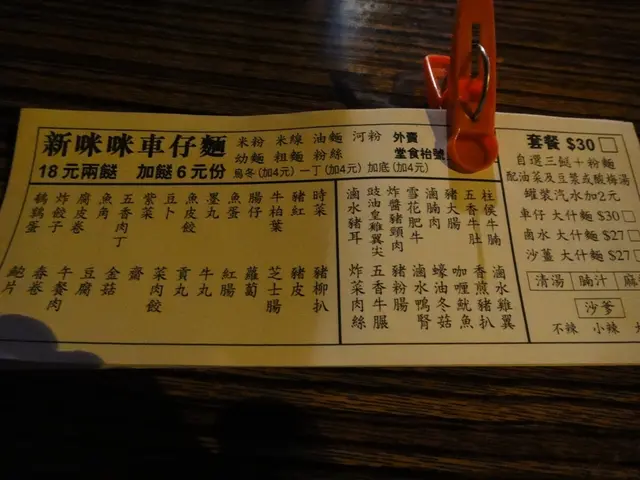 新咪咪車仔麵
18元兩餸 加餸6元份
米粉 米線 油麵 河粉 外賣
幼麵 粗麵 粉絲 堂食枱號
烏冬(加4元) 一丁(加4元) 加底(加4元)
時菜
豬紅
牛柏葉
腸仔
魚蛋
墨丸
魚皮餃
豆卜
紫菜
五香肉丁
魚角
腐皮卷
炸餃
鵪鶉蛋
豬柳扒
豬皮
芝士腸
蘿蔔
紅腸
牛丸
貢丸
菜肉餃
齋
金菇
豆腐
午餐肉
春卷
鮑片
柱侯牛腩
五香牛肚
豬大腸
滷腩肉
雪花肥牛
炸醬豬頸肉
豉油皇雞翼尖
滷水豬耳
滷水雞翼
香煎豬扒
咖喱魷魚
蠔油冬菇
滷水鴨腎
豬粉腸
五香牛脹
炸菜肉絲
套餐 $30
自選三餸+粉麵
配油菜及豆漿或酸梅湯
罐裝汽水加2元
車仔 大什麵 $30
滷水 大什麵 $27
沙薑 大什麵 $27
清湯 腩汁
沙爹
不辣 小辣